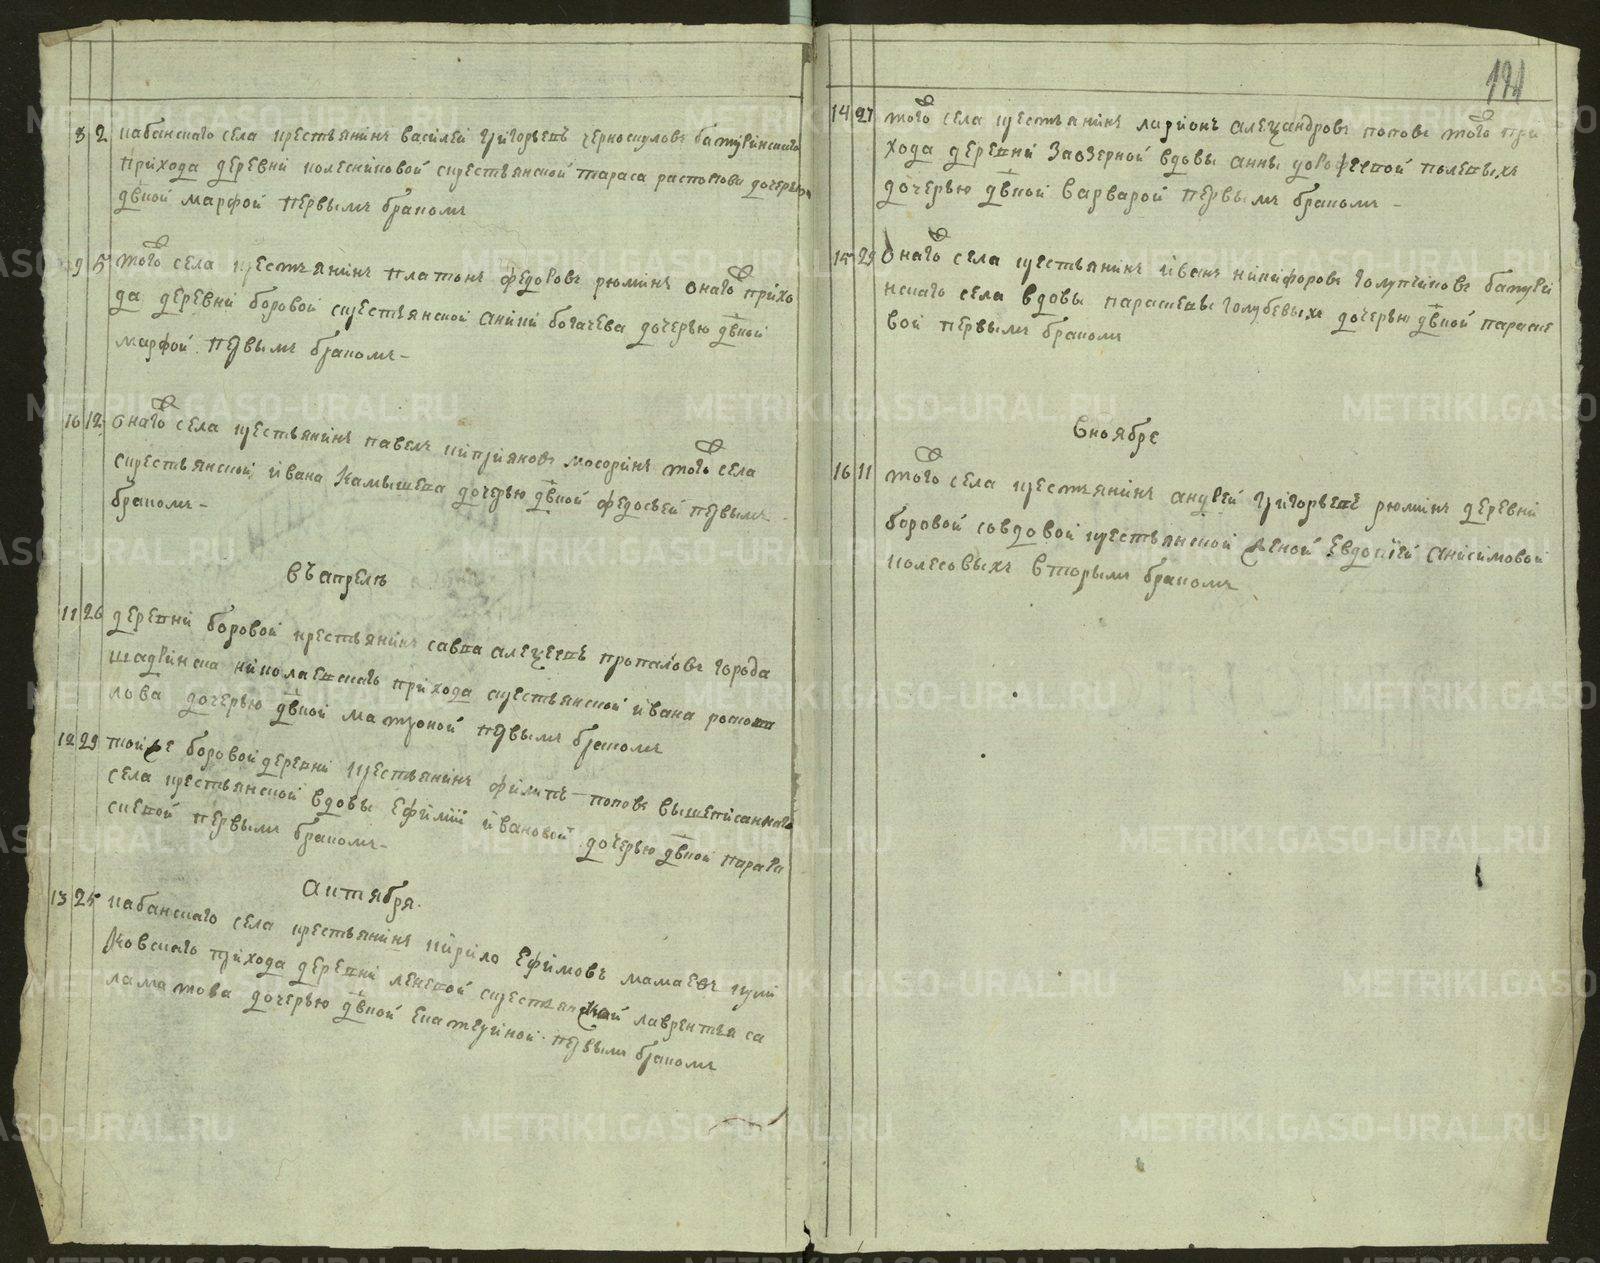 8 2 кабанскаго села крестьянинъ василей григорьевъ черноскуловъ батуринскаго
прихода деревни колесниковой скрестьянской тараса распопова дочерью
двкой марфой первымъ бракомъ
9 5 того села крестьянинъ платонъ федоровъ рюминъ онаго прихо
да деревни боровой скрестьянской аники богачева дочерью двкой
марфой первымъ бракомъ
10 12 онаго села крестьянинъ павелъ киприяновъ мосоринъ того села
скрестьянской ивана камышева дочерью двкой федосьей первымъ
бракомъ
въ апрелѣ
11 26 деревни боровой крестьянинъ савва алексеевъ пропаловъ города
шадринска николаевскаго прихода скрестьянской ивана
лова дочерью двкой матроной первымъ бракомъ
12 29 той же боровой деревни крестьянинъ филипъ поповъ вышеписаннаго
села крестьянской вдовы ефимии ивановой дочерью двкой параск
первымъ бракомъ
октября
13 25 кабанскаго села крестьянинъ кирило ефимовъ мамаевъ крти
ковскаго прихода деревни скрестьянской лаврентья са
ламатова дочерью двкой екатериной первымъ бракомъ
191
14 27 того села крестьянинъ ларионъ александровъ поповъ того при
хода деревни заозерной вдовы анны полевыхъ
дочерью двкой варварой первымъ бракомъ
15 29 онаго села крестьянинъ иванъ никифоровъ голупчиковъ батури
нскаго села вдовы параскевы голубевыхъ дочерью двкой параске
вой первымъ бракомъ
в ноябре
16 11 того села крестьянинъ андрей григорьевъ рюминъ деревни
боровой совдовой крестьянской женой евдокией анисимовой
колесовыхъ вторымъ бракомъ
METRIKI.GASO-URAL.RU